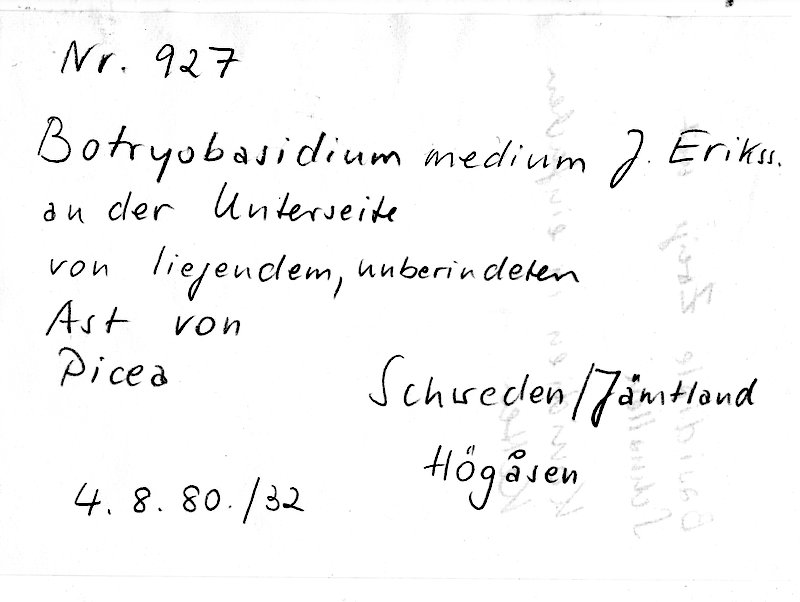 Nr. 927
Botryobasidium medium J. Erikss.
an der Unterseite
von liegendem, unberindeten
Ast von
Picea
Schweden/Jämtland
Högåsen
4. 8. 80./32